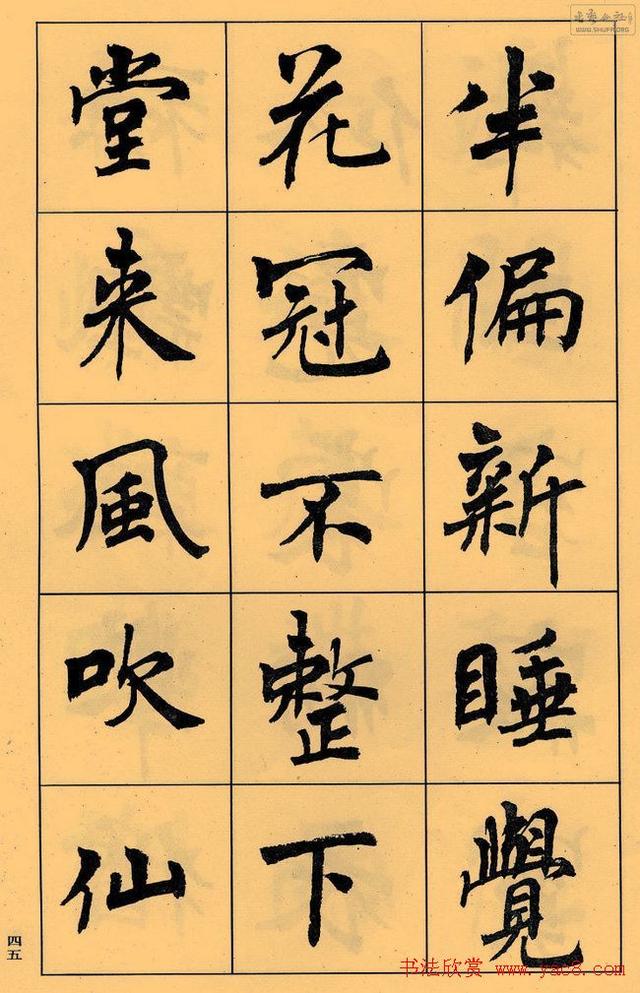 半偏新睡覺
花冠不整下
堂来風吹仙
四五
书法欣赏 www.yac8.com
WWW.SHUFF.ORG